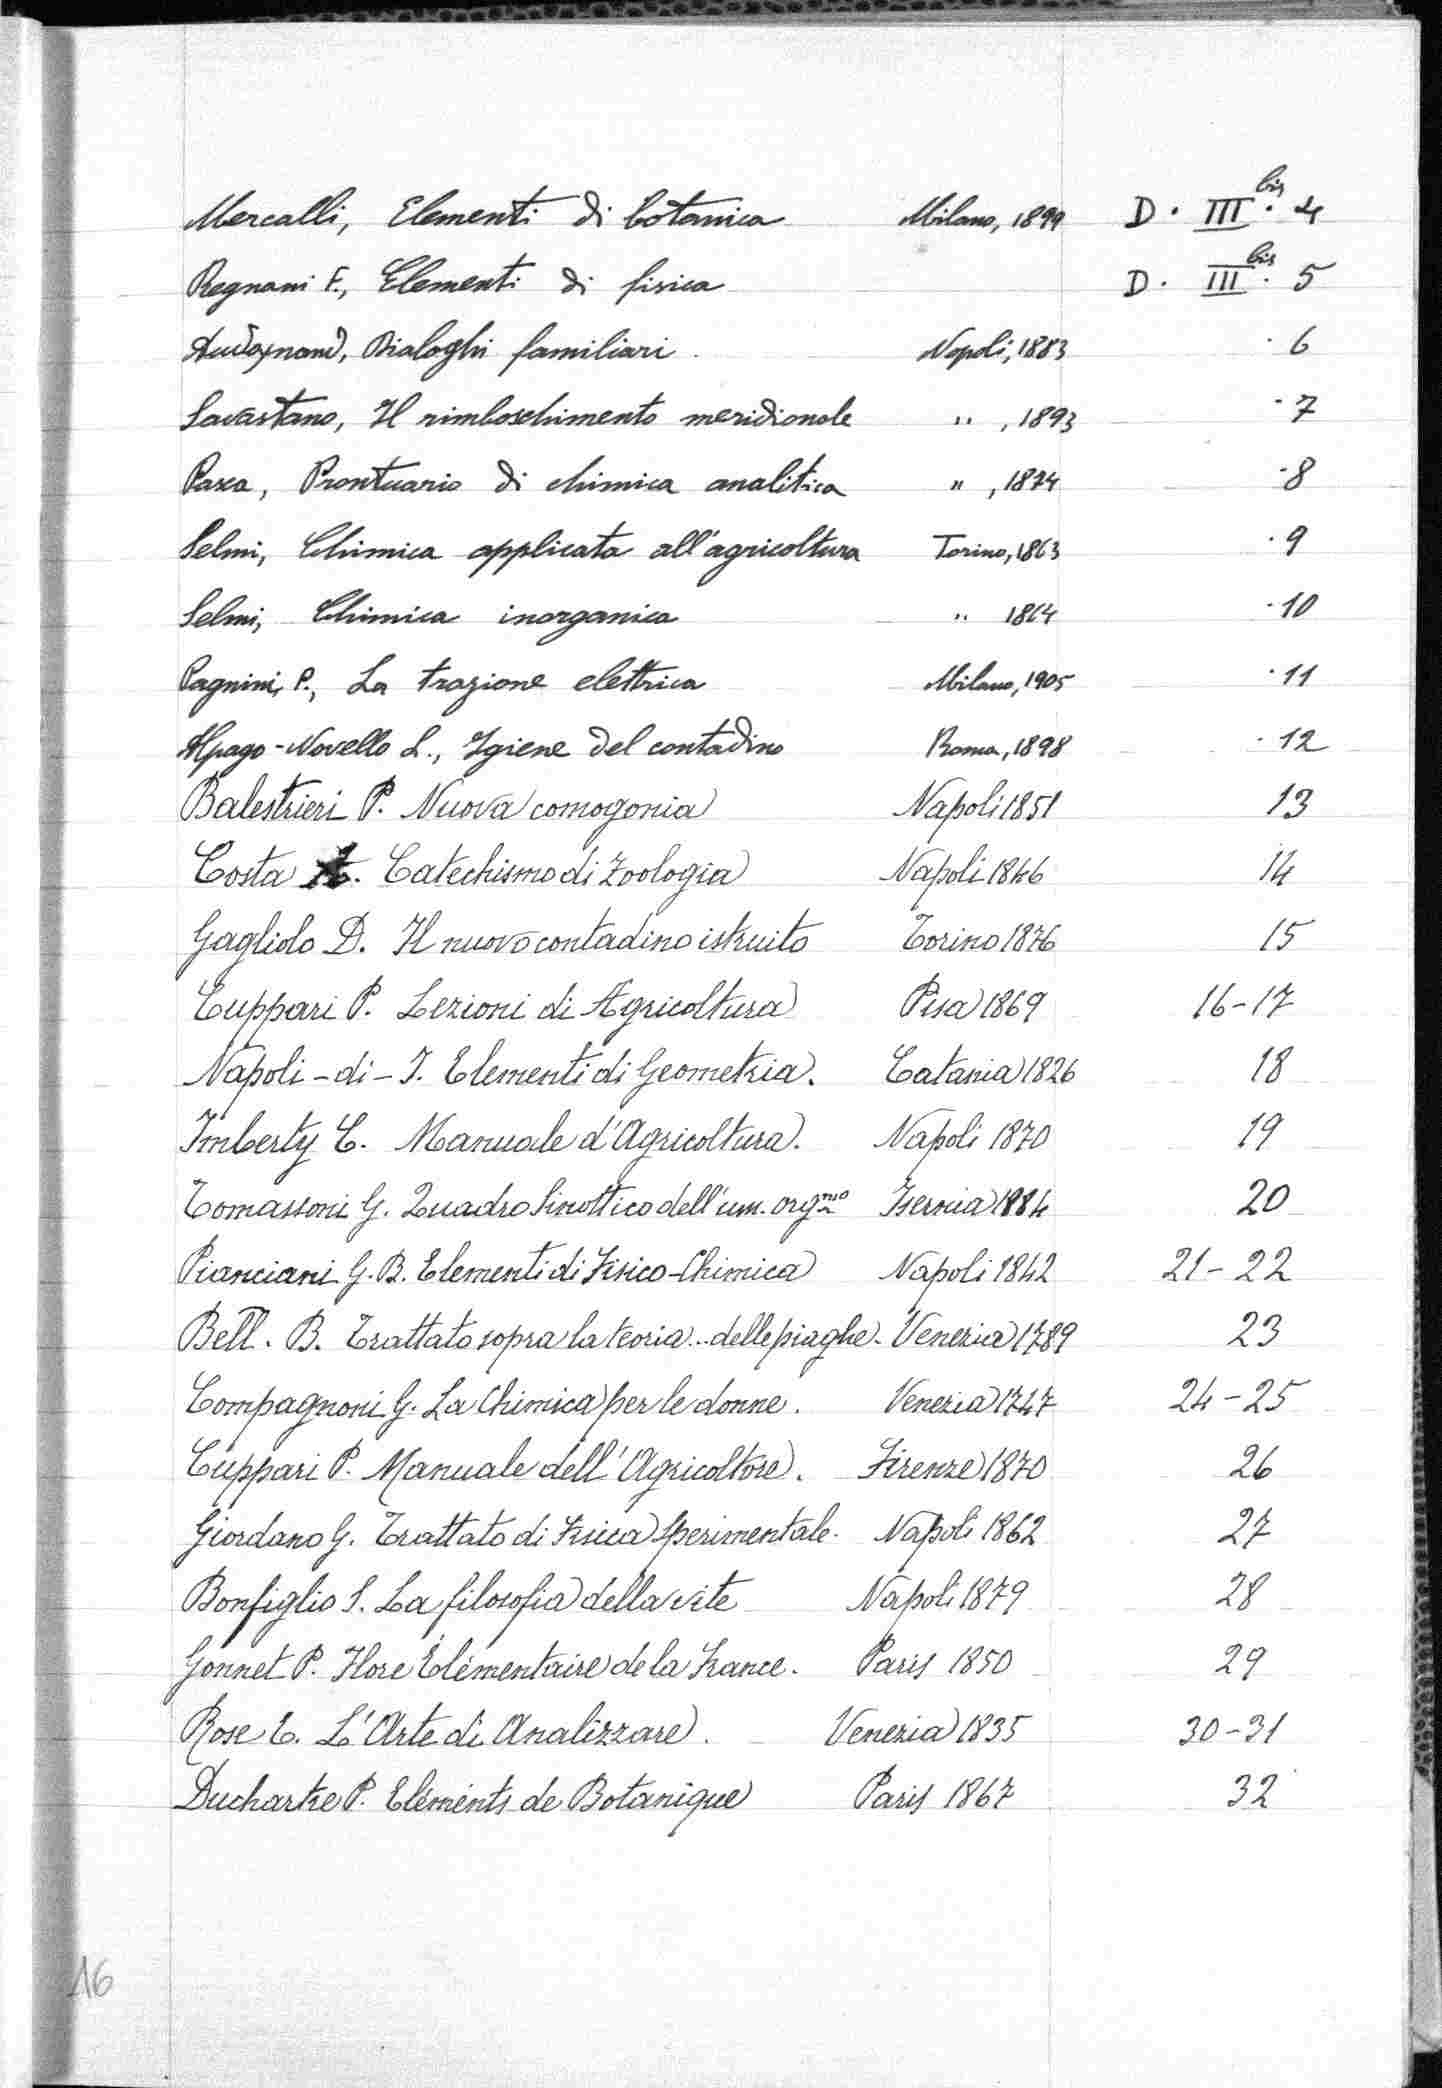 Mercalli, Elementi di botanica Milano, 1899 D. III bis. 4
Regnani F., Elementi di fisica D. III bis. 5
Audoynand, Dialoghi familiari. Napoli, 1883 . 6
Savastano, Il rimboschimento meridionale " , 1893 . 7
Pasca, Prontuario di chimica analitica " , 1874 . 8
Selmi, Chimica applicata all'agricoltura Torino, 1863 . 9
Selmi, Chimica inorganica " 1864 . 10
Pagnini, P., La trazione elettrica Milano, 1905 . 11
Alpago-Novello L., Igiene del contadino Roma, 1898 . 12
Balestrieri P. Nuova comogonia Napoli 1851 13
Costa A. Catechismo di Zoologia Napoli 1846 14
Gagliolo D. Il nuovo contadino istruito Torino 1876 15
Cuppari P. Lezioni di Agricoltura Pisa 1869 16-17
Napoli-di-I. Elementi di Geometria. Catania 1826 18
Imberty C. Manuale d'Agricoltura. Napoli 1870 19
Tomassoni G. Quadro Sinottico dell'um. orgmo Isernia 1884 20
Pianciani G. B. Elementi di Fisico-Chimica Napoli 1842 21-22
Bell. B. Trattato sopra la teoria... delle piaghe. Venezia 1789 23
Compagnoni G. La Chimica per le donne. Venezia 1747 24-25
Cuppari P. Manuale dell'Agricoltore. Firenze 1870 26
Giordano G. Trattato di Fisica Sperimentale. Napoli 1862 27
Bonfiglio S. La filosofia della vite Napoli 1879 28
Gonnet P. Flore Élémentaire de la France. Paris 1850 29
Rose E. L'Arte di Analizzare. Venezia 1835 30-31
Duchartre P. Eléménts de Botanique Paris 1867 32
16